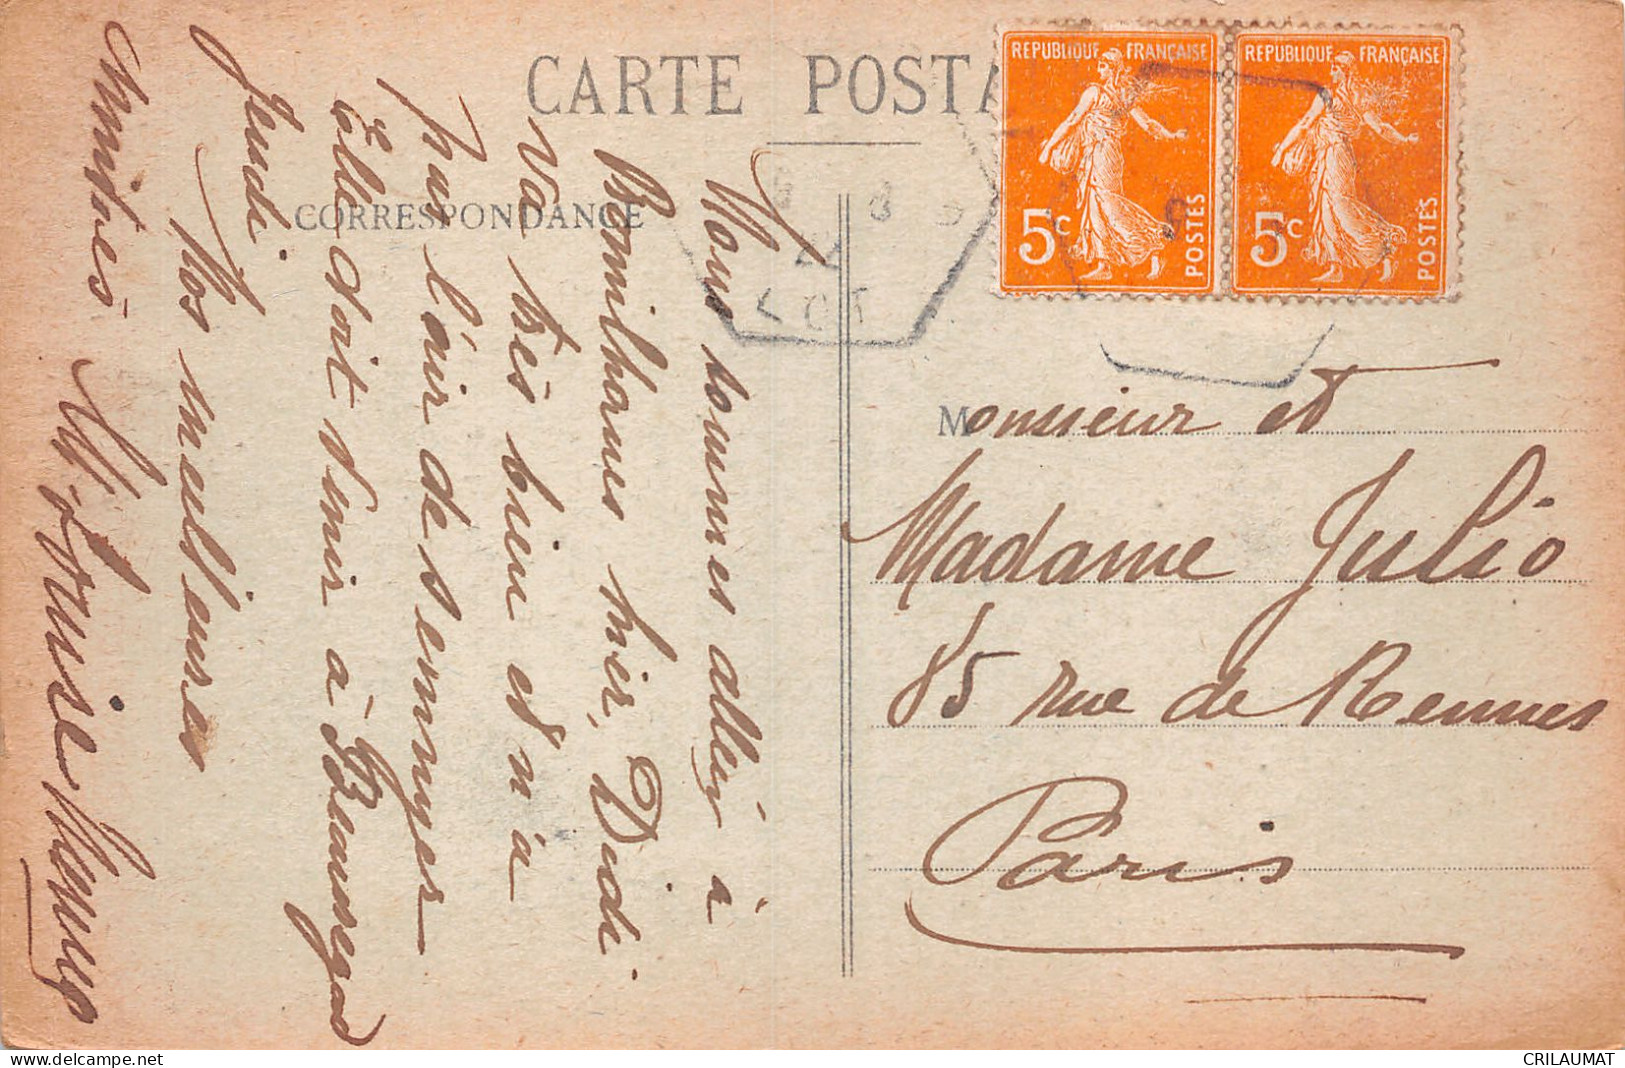 CARTE POSTA
CORRESPONDANCE
RÉPUBLIQUE FRANÇAISE
5c POSTES
RÉPUBLIQUE FRANÇAISE
5c POSTES
LOT
Nous sommes allés à
Bomilhous hier, Dudi
va très bien et n'a
pas l'air de s'ennuyer
Elle doit venir à
Jeudi.
Nos meilleures
Amitiés M. Louise
Monsieur et
Madame Julio
85 rue de Rennes
Paris
CRILAUMAT